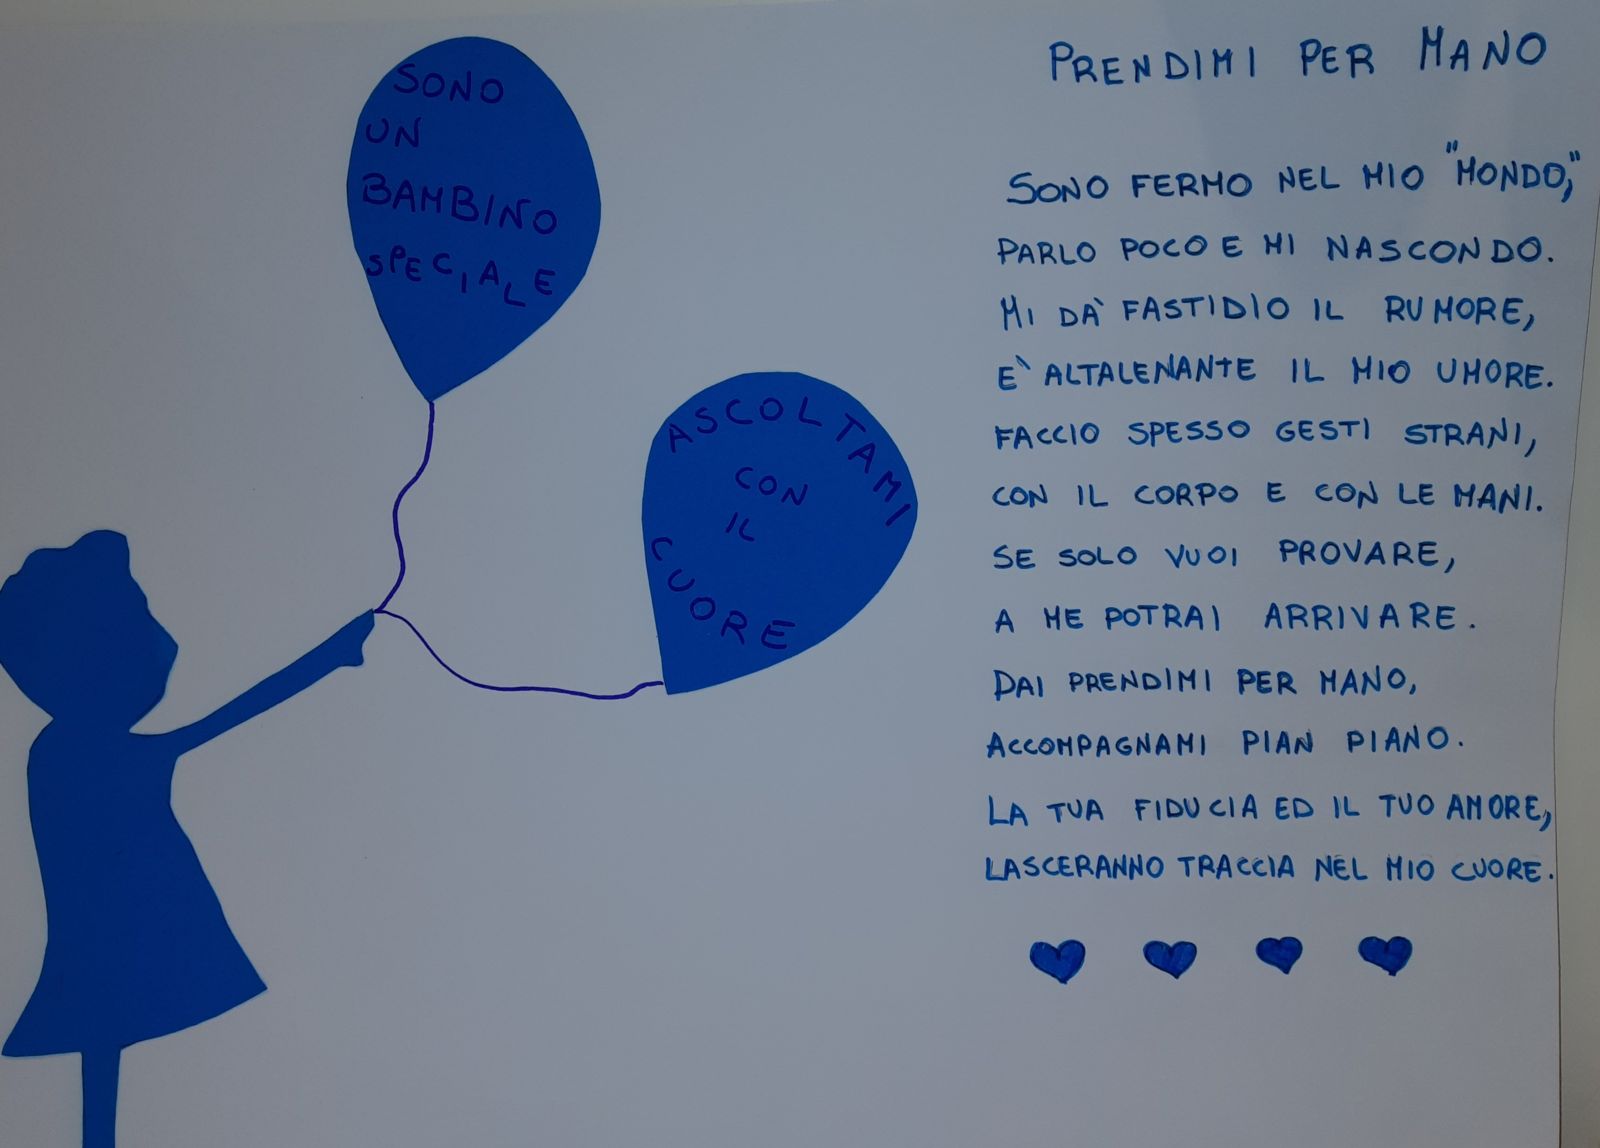 SONO
UN
BAMBINO
SPECIALE
ASCOLTAMI
CON
IL
CUORE
PRENDIMI PER MANO
SONO FERMO NEL MIO "MONDO,"
PARLO POCO E MI NASCONDO.
MI DA' FASTIDIO IL RUMORE,
E' ALTALENANTE IL MIO UMORE.
FACCIO SPESSO GESTI STRANI,
CON IL CORPO E CON LE MANI.
SE SOLO VUOI PROVARE,
A ME POTRAI ARRIVARE.
DAI PRENDIMI PER MANO,
ACCOMPAGNAMI PIAN PIANO.
LA TUA FIDUCIA ED IL TUO AMORE,
LASCERANNO TRACCIA NEL MIO CUORE.